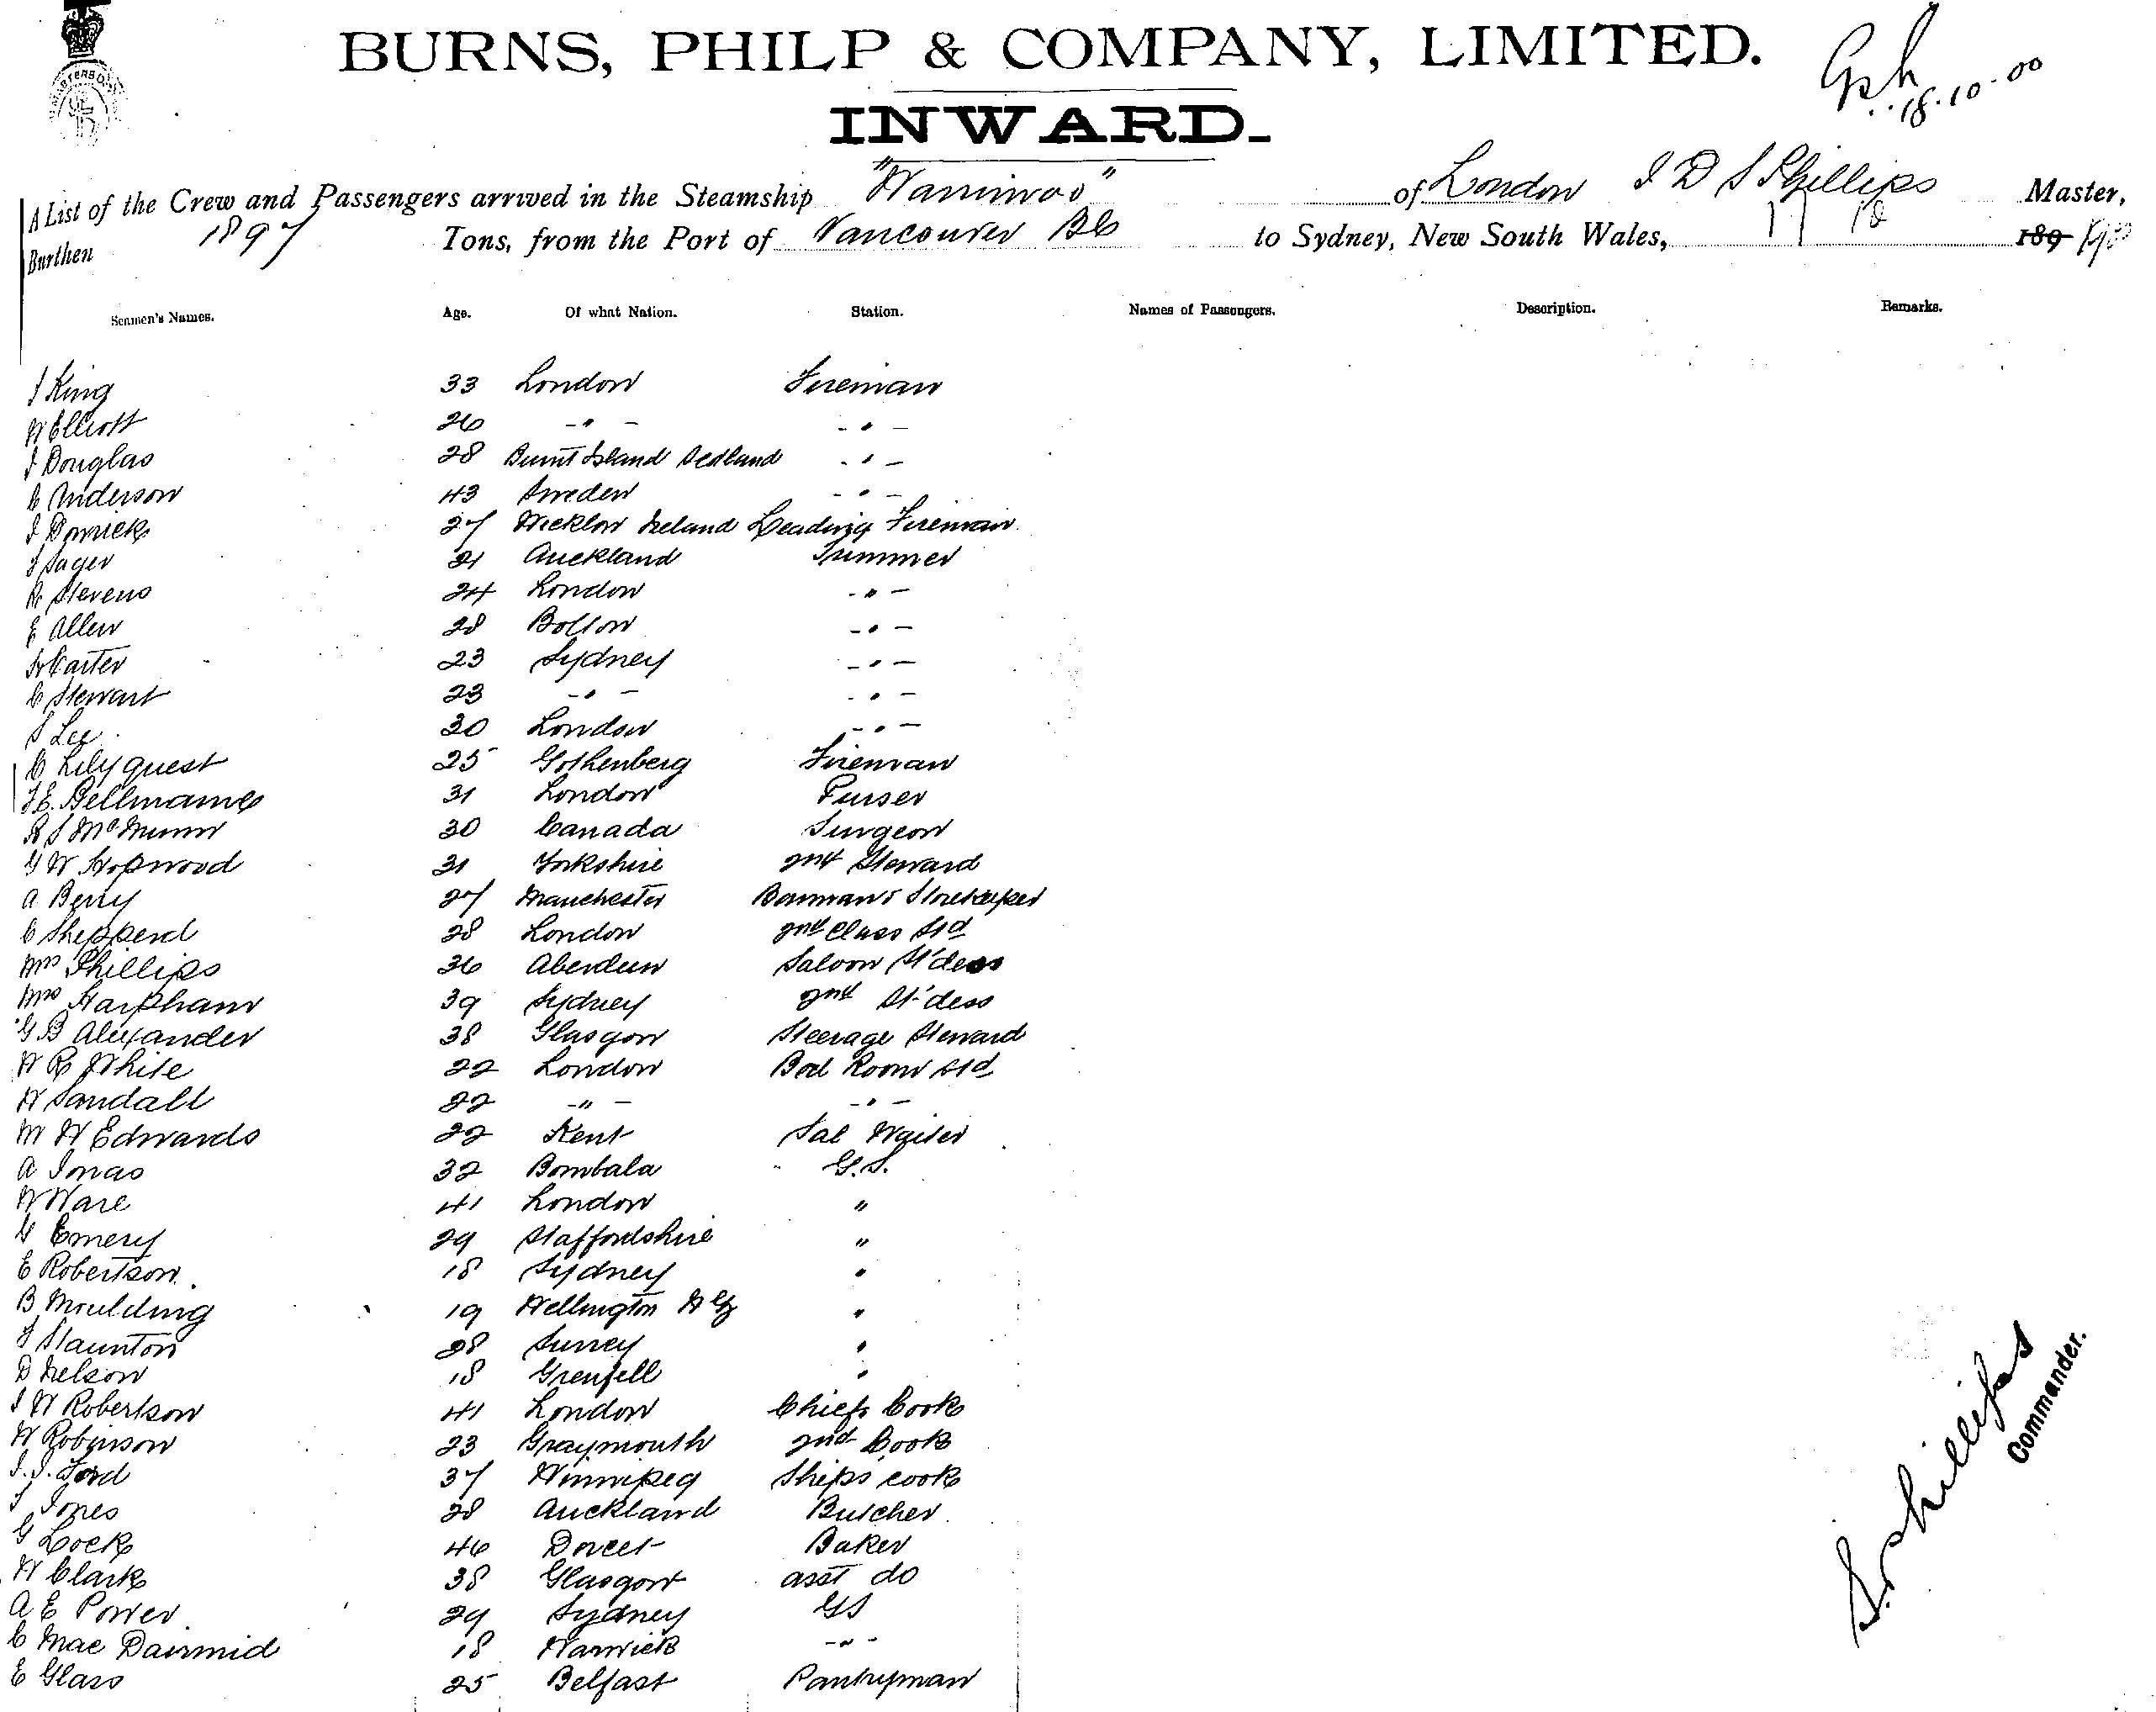 BURNS, PHILP & COMPANY, LIMITED.
18.10.00
INWARD.
A List of the Crew and Passengers arrived in the Steamship "Warrimoo" of London I D S Phillips Master,
Burthen 1897 Tons, from the Port of Vancouver BC to Sydney, New South Wales, 17 10 189 1900
Seamen's Names. Age. Of what Nation. Station. Names of Passengers. Description. Remarks.
J King 33 London Fireman
W Elliott 26 - " - - " -
J Douglas 28 Burnt Island Scotland - " -
C Anderson 43 Sweden - " -
27 Wicklow Ireland Leading Fireman
J Sager 21 Auckland Trimmer
R Stevens 24 London - " -
E Allen 28 Bolton - " -
H Carter 23 Sydney - " -
C Stewart 23 - " - - " -
S Lee 30 London - " -
C Lilyquest 25 Gothenberg Fireman
31 London Purser
R S McMunn 30 Canada Surgeon
G W Hopwood 31 Yorkshire 2nd Steward
A. Berry 27 Manchester Barman & Storekeeper
C Shepperd 28 London 2nd Class Std
Mrs Phillips 36 Aberdeen Saloon St'dess
Mrs Harpham 39 Sydney 2nd St'dess
G B Alexander 38 Glasgow Steerage Steward
W R White 22 London Bed Room Std
W Sandall 22 - " - - " -
M W Edwards 22 Kent Sal Waiter
A Jonas 32 Bombala G.S.
W Ware 41 London "
G Emery 29 Staffordshire "
E Robertson 18 Sydney "
B Moulding 19 Wellington N Z "
J Staunton 28 Surrey "
D Nelson 18 Grenfell "
J W Robertson 41 London Chief Cook
W Robinson 23 Graymouth 2nd Cook
J. J. Ford 37 Winnipeg Ships Cook
J Jones 28 Auckland Butcher
G Lock 46 Dorset Baker
W Clark 38 Glasgow asst do
A E Power 29 Sydney GS
C Mac Dairmid 18 Warwick - " -
E Glass 25 Belfast Pantryman
S Phillips
Commander.